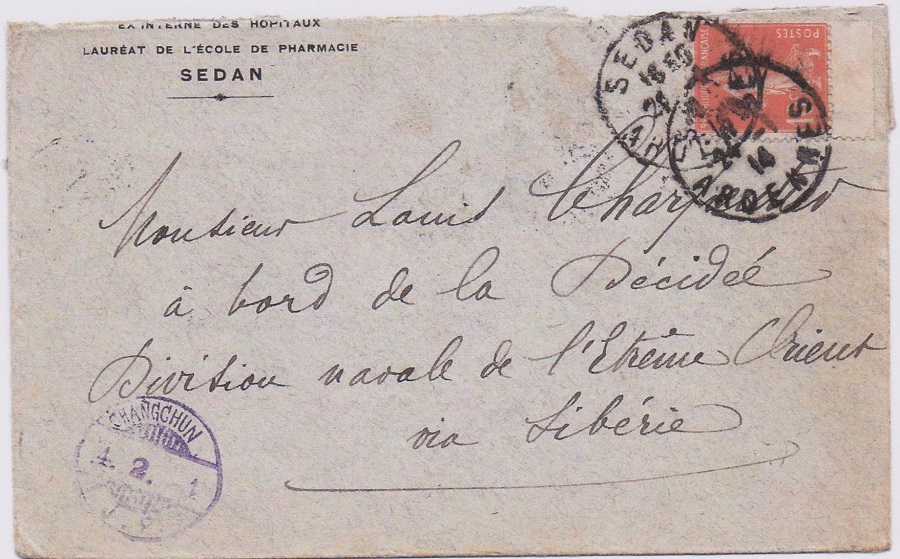 EX-INTERNE DES HOPITAUX
LAURÉAT DE L'ÉCOLE DE PHARMACIE
SEDAN
SEDAN
18 50
ARDENNES
14
POSTES
Monsieur Louis
à bord de la Décideé
Division navale de l'Etrême Orient
via Sibérie
CHANGCHUN
4. 2. 1